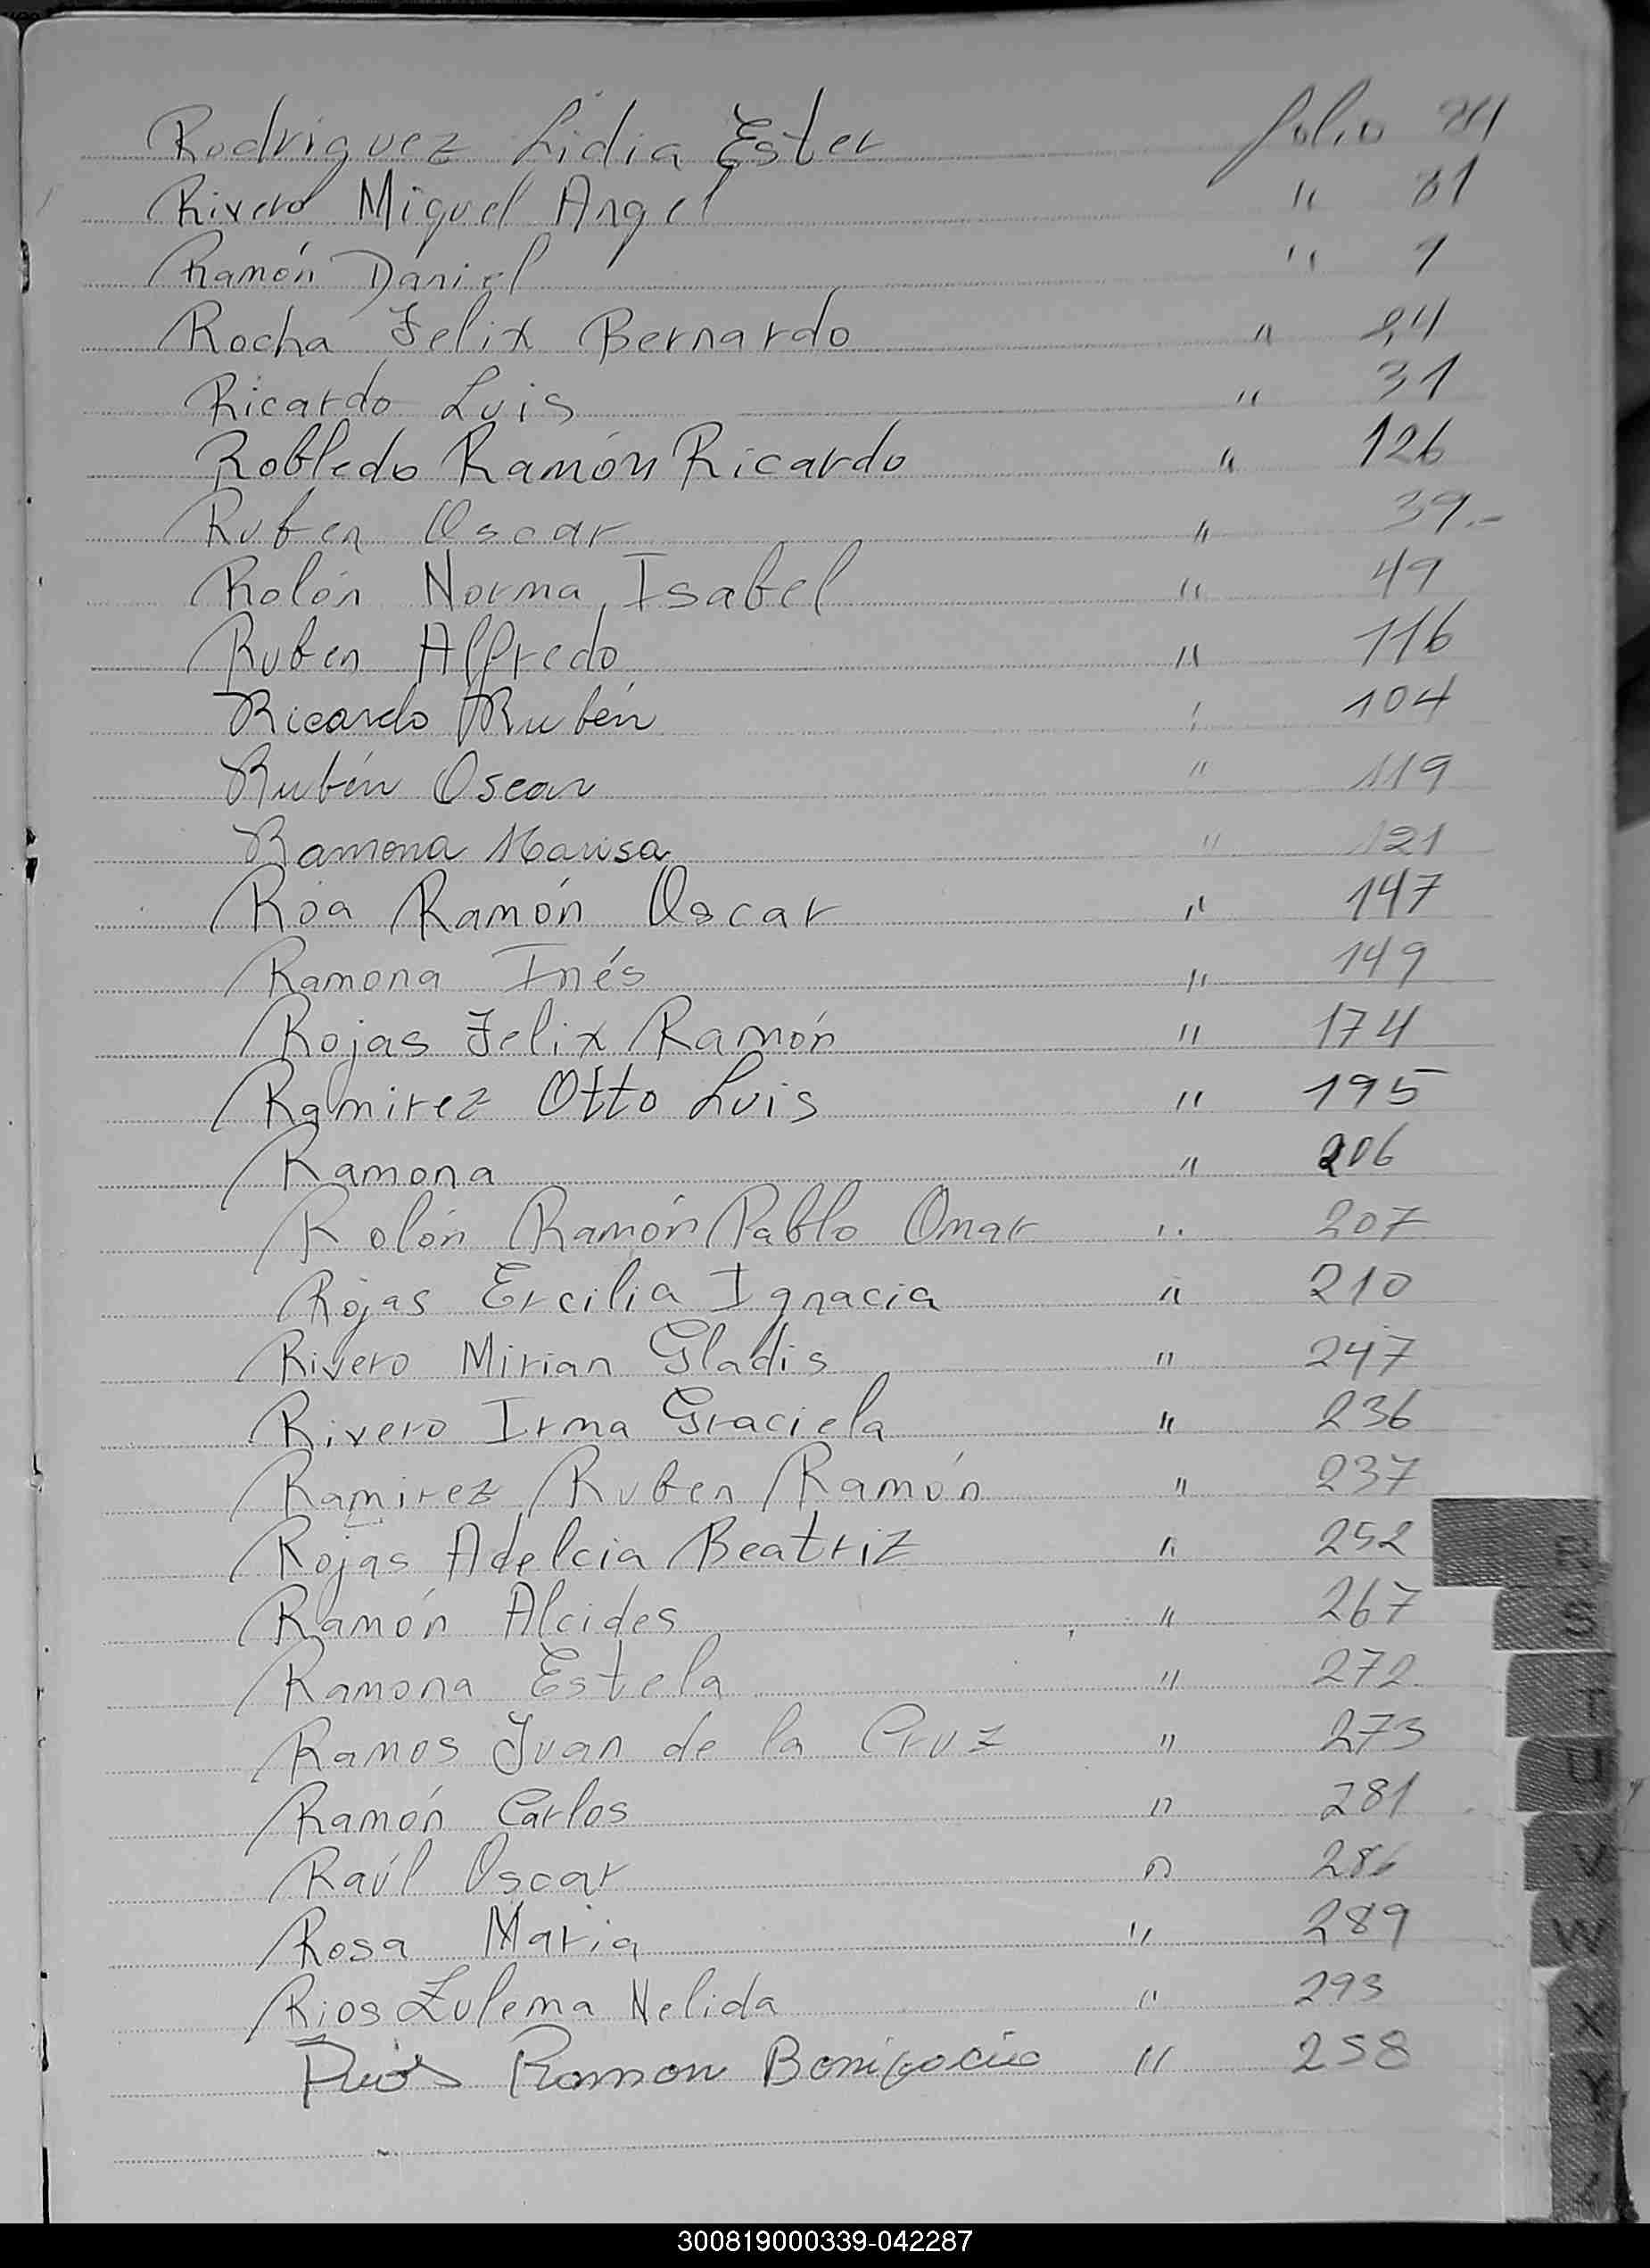 Rodriguez Lidia Ester folio 24
Rivero Miguel Angel " 31
Ramón Daniel " 1
Rocha Felix Bernardo " 24
Ricardo Luis " 31
Robledo Ramón Ricardo " 126
Ruben Oscar " 39.-
Rolón Norma Isabel " 49
Ruben Alfredo " 116
Ricardo Rubén " 104
Rubén Oscar " 119
Ramona Marisa " 121
Roa Ramón Oscar " 147
Ramona Inés " 149
Rojas Felix Ramón " 174
Ramirez Otto Luis " 195
Ramona " 206
Rolón Ramón Pablo Omar " 207
Rojas Ercilia Ignacia " 210
Rivero Mirian Gladis " 247
Rivero Irma Graciela " 236
Ramirez Ruben Ramón " 237
Rojas Adelcia Beatriz " 252
Ramón Alcides " 267
Ramona Estela " 272
Ramos Juan de la Cruz " 273
Ramón Carlos " 281
Raúl Oscar " 286
Rosa Maria " 289
Rios Zulema Nelida " 293
Rios Ramon Bonifacio " 258
R
S
T
U
V
W
X
Y
Z
300819000339-042287